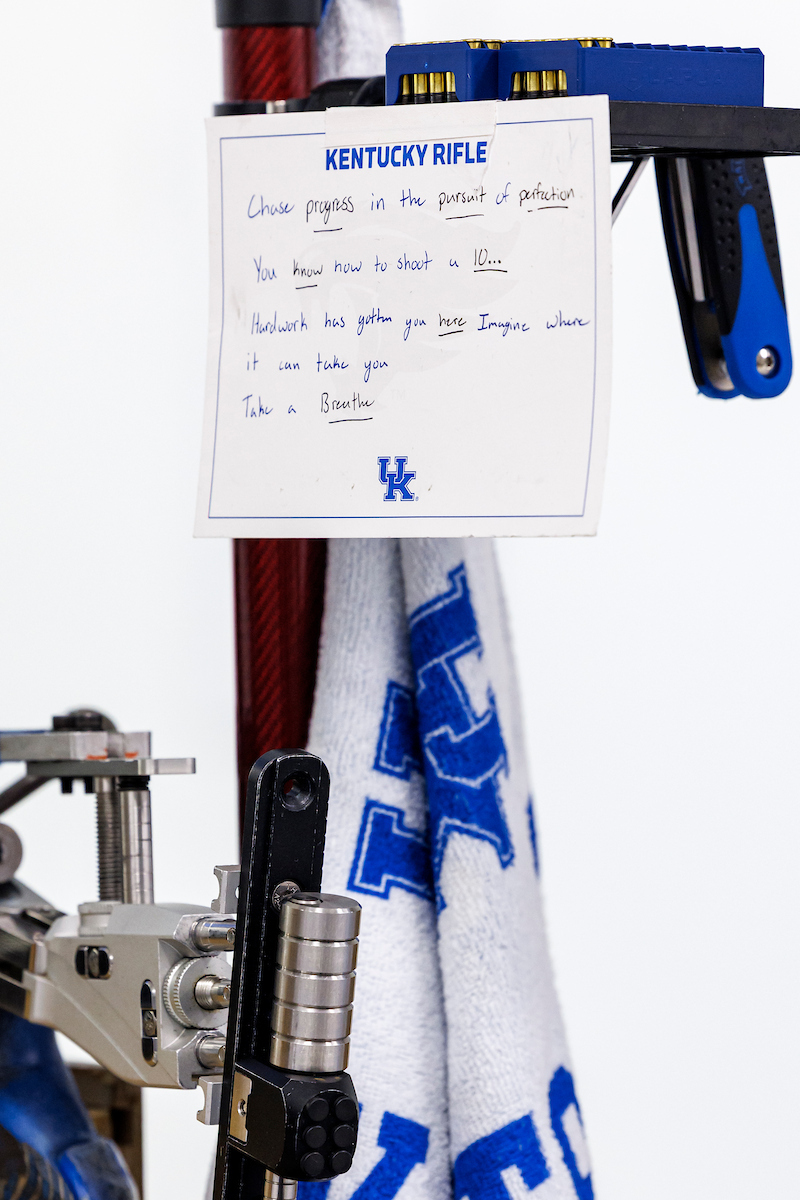 KENTUCKY RIFLE
Chase progress in the pursuit of perfection
You know how to shoot a 10...
Hardwork has gotten you here Imagine where
it can take you
Take a Breathe
UK
UK